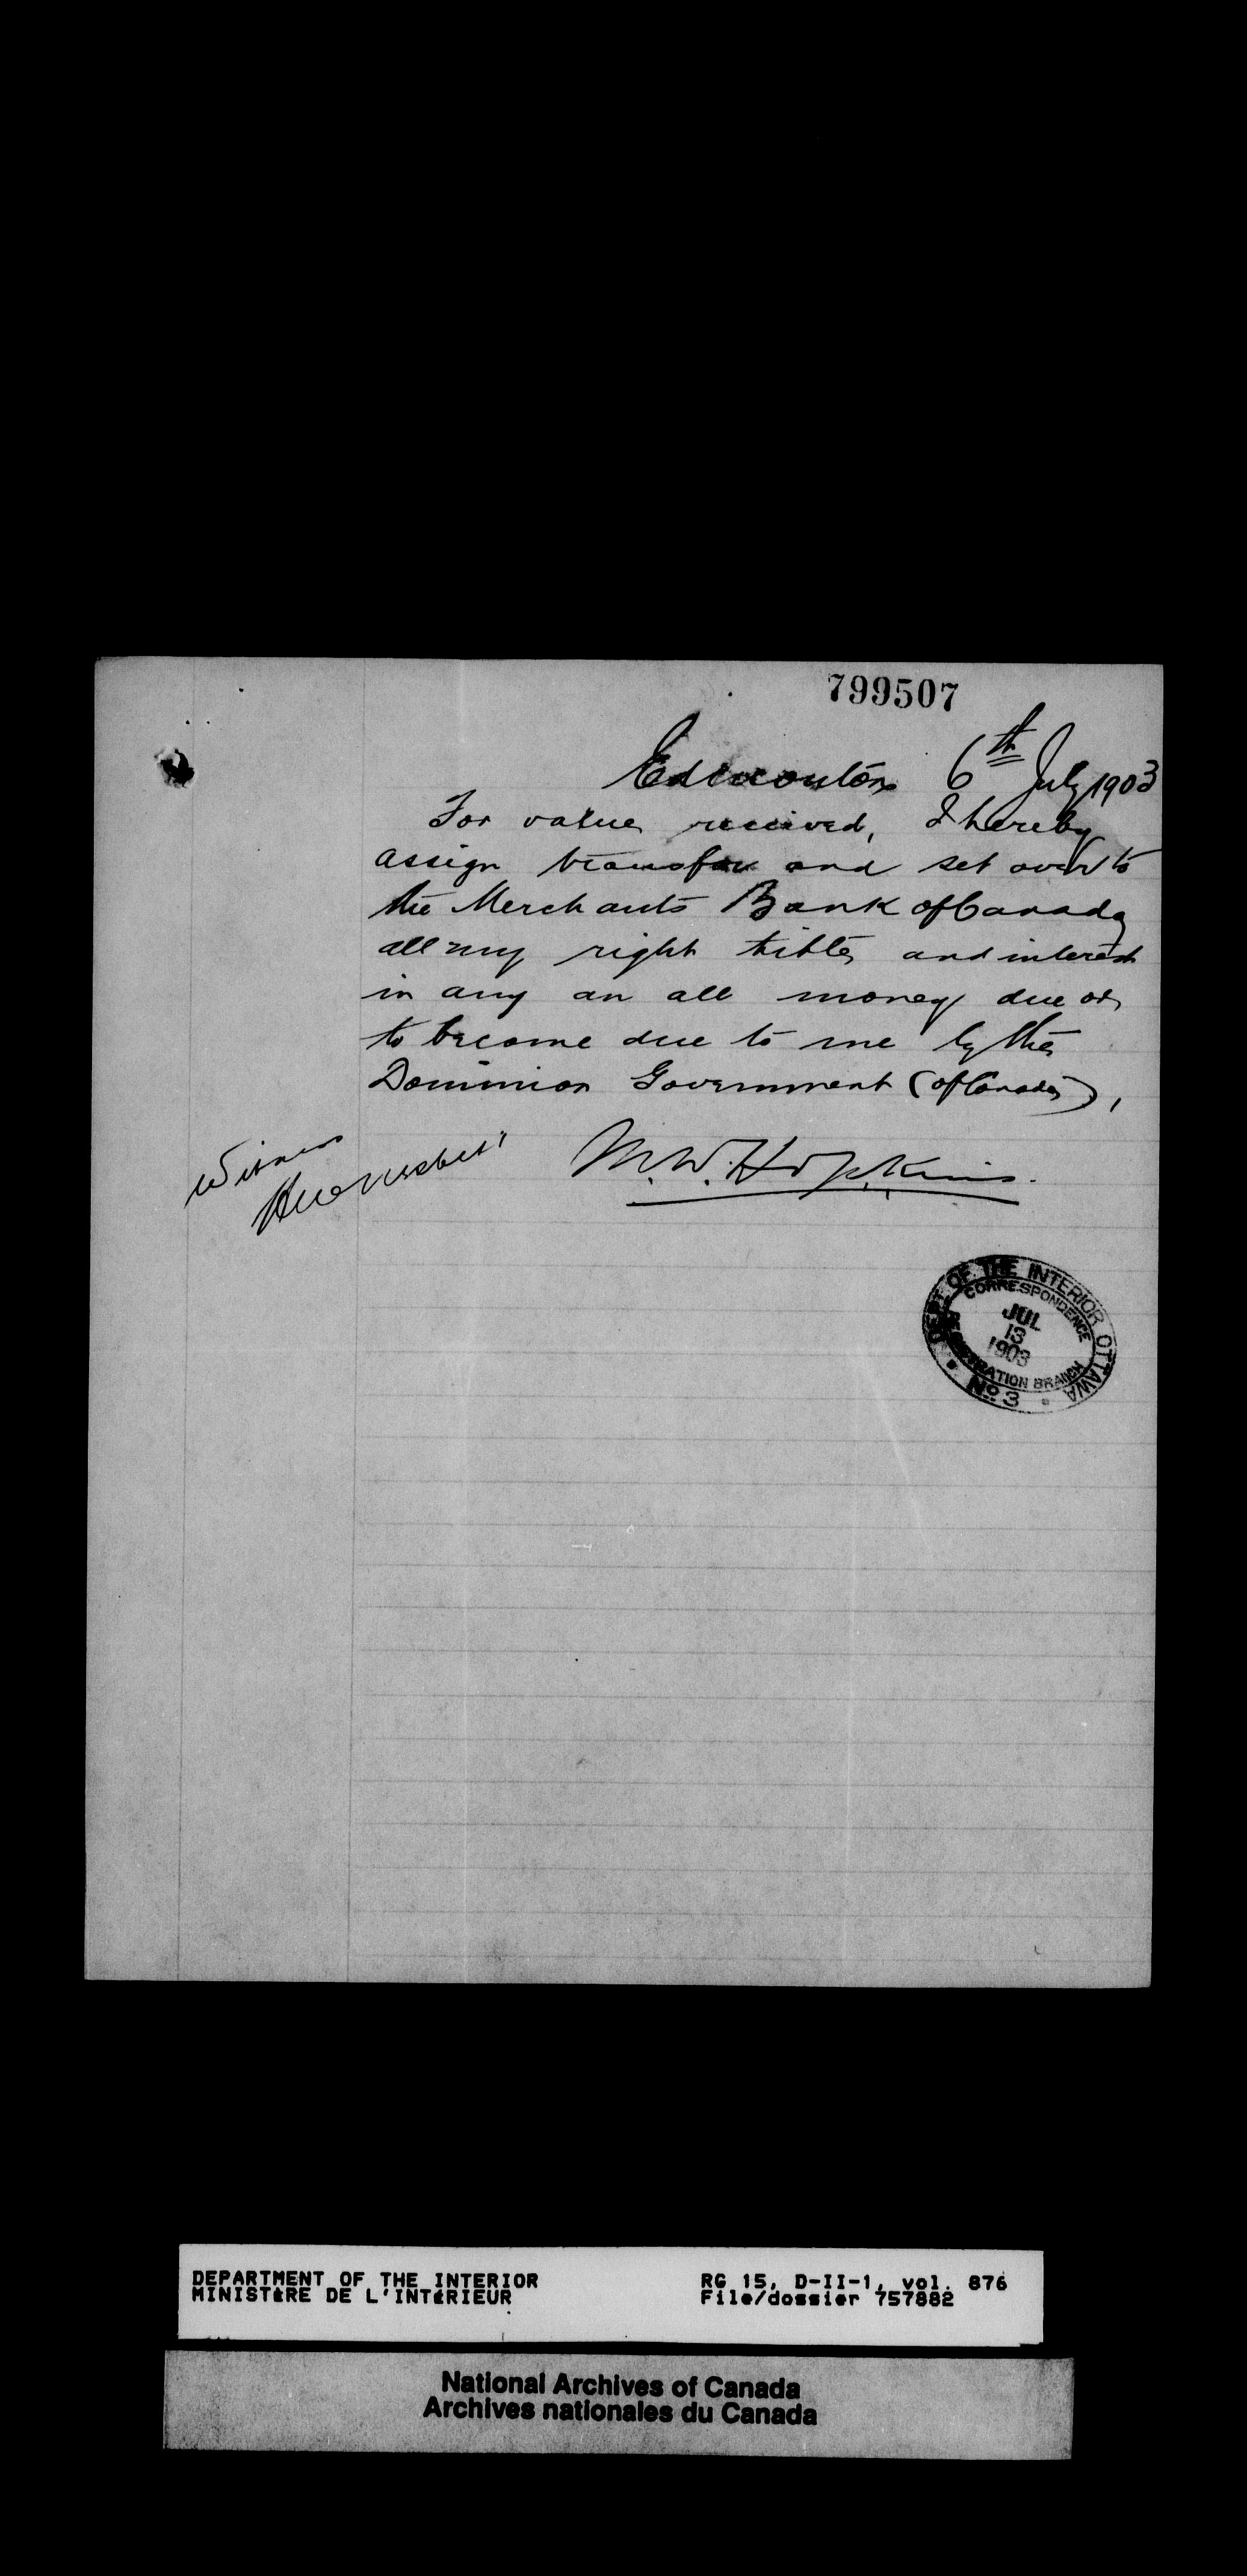 799507
Edmonton 6th July 1903
For value received, I hereby
assign transfer and set over to
the Merchants Bank of Canada
all my right title, and interest
in any an all money due or
to become due to me by the
Dominion Government (of Canada),
Witness
M.W. Hopkins.
DEPT OF THE INTERIOR OTTAWA
CORRESPONDENCE
JUL
13
1903
REGISTRATION BRANCH
No. 3
DEPARTMENT OF THE INTERIOR
MINISTÈRE DE L'INTÉRIEUR
RG 15, D-II-1, vol. 876
File/dossier 757882
National Archives of Canada
Archives nationales du Canada